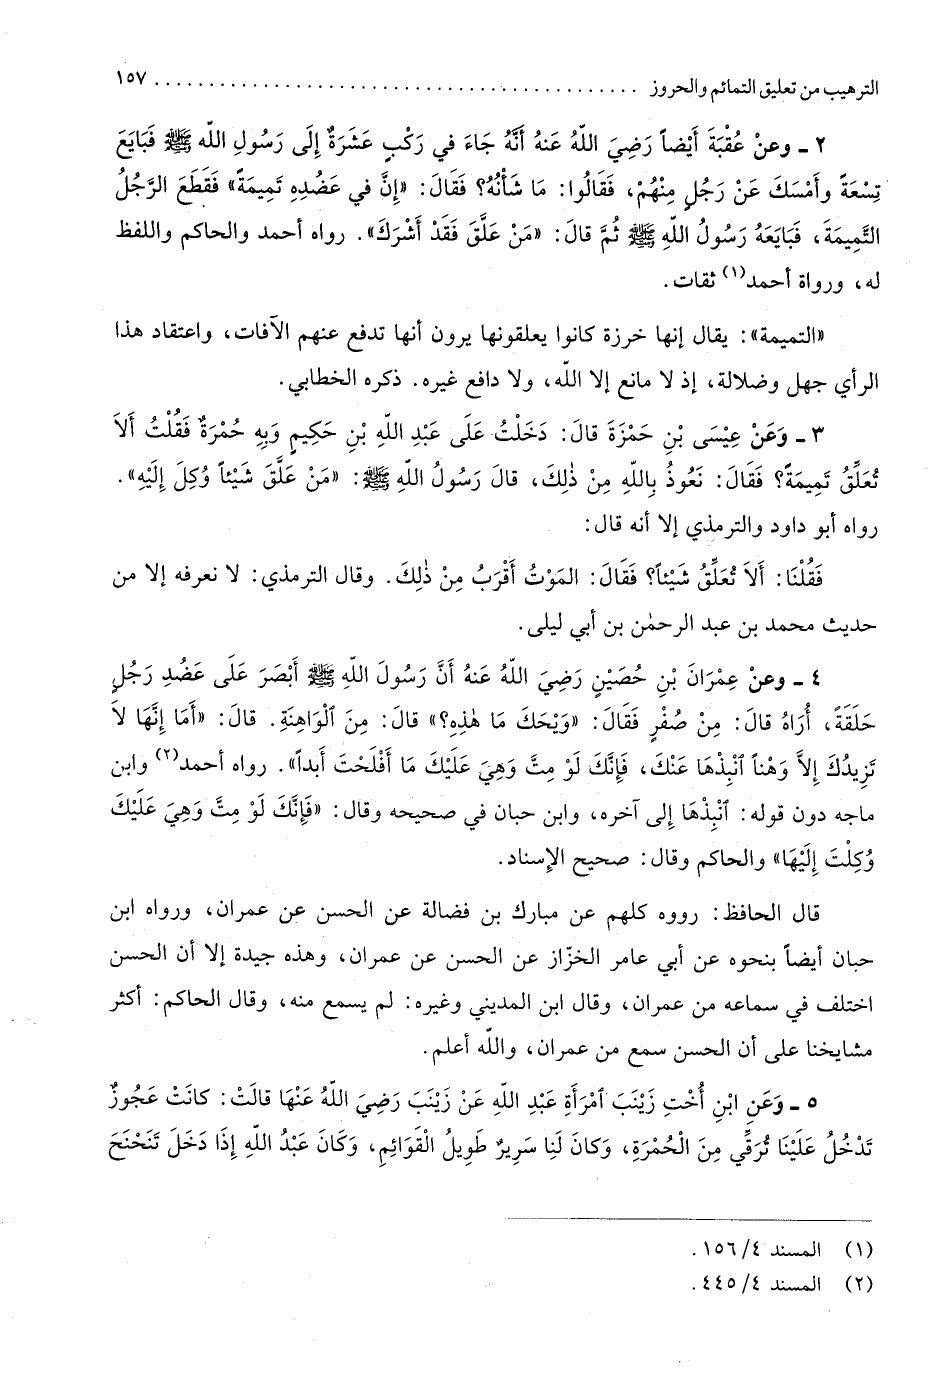 الترهيب من تعليق التمائم والحروز ............................................ ١٥٧
٢ ـ وعنْ عُقْبَةَ أَيْضاً رَضِيَ اللّهُ عَنْهُ أَنَّهُ جَاءَ في رَكْبٍ عَشَرَةٌ إِلَى رَسُولِ اللّه ﷺ فَبَايَعَ
تِسْعَةً وأَمْسَكَ عَنْ رَجُلٍ مِنْهُمْ، فَقَالُوا: مَا شَأْنُهُ؟ فَقَالَ: «إِنَّ في عَضُدِهِ تَمِيمَةً» فَقَطَعَ الرَّجُلُ
التَّمِيمَةَ، فَبَايَعَهُ رَسُولُ اللّهِ ﷺ ثُمَّ قالَ: «مَنْ عَلَّقَ فَقَدْ أَشْرَكَ». رواه أحمد والحاكم واللفظ
له، ورواة أحمد(١) ثقات.
«التميمة»: يقال إنها خرزة كانوا يعلقونها يرون أنها تدفع عنهم الآفات، واعتقاد هذا
الرأي جهل وضلالة، إذ لا مانع إلا اللّه، ولا دافع غيره. ذكره الخطابي.
٣ ـ وَعَنْ عِيْسَى بْنِ حَمْزَةَ قالَ: دَخَلْتُ عَلَى عَبْدِ اللّهِ بْنِ حَكِيمٍ وَبِهِ حُمْرَةٌ فَقُلْتُ أَلاَ
تُعَلِّقُ تَمِيمَةً؟ فَقَالَ: نَعُوذُ بِاللّهِ مِنْ ذٰلِكَ، قالَ رَسُولُ اللّهِ ﷺ: «مَنْ عَلَّقَ شَيْئاً وُكِلَ إِلَيْهِ».
رواه أبو داود والترمذي إلا أنه قال:
فَقُلْنَا: أَلاَ تُعَلِّقُ شَيْئاً؟ فَقَالَ: المَوْتُ أَقْرَبُ مِنْ ذٰلِكَ. وقال الترمذي: لا نعرفه إلا من
حديث محمد بن عبد الرحمٰن بن أبي ليلى.
٤ ـ وعنْ عِمْرَانَ بْنِ حُصَيْنٍ رَضِيَ اللّهُ عَنْهُ أَنَّ رَسُولَ اللّهِ ﷺ أَبْصَرَ عَلَى عَضُدِ رَجُلٍ
حَلَقَةً، أُرَاهُ قالَ: مِنْ صُفْرٍ فَقَالَ: «وَيْحَكَ مَا هٰذِهِ؟» قالَ: مِنَ ٱلْوَاهِنَةِ. قالَ: «أَمَا إِنَّهَا لاَ
تَزِيدُكَ إِلاَّ وَهْناً ٱنْبِذْهَا عَنْكَ، فَإِنَّكَ لَوْ مِتَّ وَهِيَ عَلَيْكَ مَا أَفْلَحْتَ أَبداً». رواه أحمد(٢) وابن
ماجه دون قوله: ٱنْبِذْهَا إلى آخره، وابن حبان في صحيحه وقال: «فَإِنَّكَ لَوْ مِتَّ وَهِيَ عَلَيْكَ
وُكِلْتَ إِلَيْهَا» والحاكم وقال: صحيح الإسناد.
قال الحافظ: رووه كلهم عن مبارك بن فضالة عن الحسن عن عمران، ورواه ابن
حبان أيضاً بنحوه عن أبي عامر الخزّاز عن الحسن عن عمران، وهذه جيدة إلا أن الحسن
اختلف في سماعه من عمران، وقال ابن المديني وغيره: لم يسمع منه، وقال الحاكم: أكثر
مشايخنا على أن الحسن سمع من عمران، واللّه أعلم.
٥ ـ وَعَنِ ابْنِ أُخْتِ زَيْنَبَ ٱمْرَأَةِ عَبْدِ اللّهِ عَنْ زَيْنَبَ رَضِيَ اللّهُ عَنْهَا قالَتْ: كانَتْ عَجُوزٌ
تَدْخُلُ عَلَيْنَا تُرَقِّي مِنَ الْحُمْرَةِ، وَكانَ لَنَا سَرِيرٌ طَوِيلُ الْقَوَائِمِ، وَكَانَ عَبْدُ اللّهِ إِذَا دَخَلَ تَنَحْنَحَ
(١) المسند ٤/ ١٥٦.
(٢) المسند ٤/ ٤٤٥.